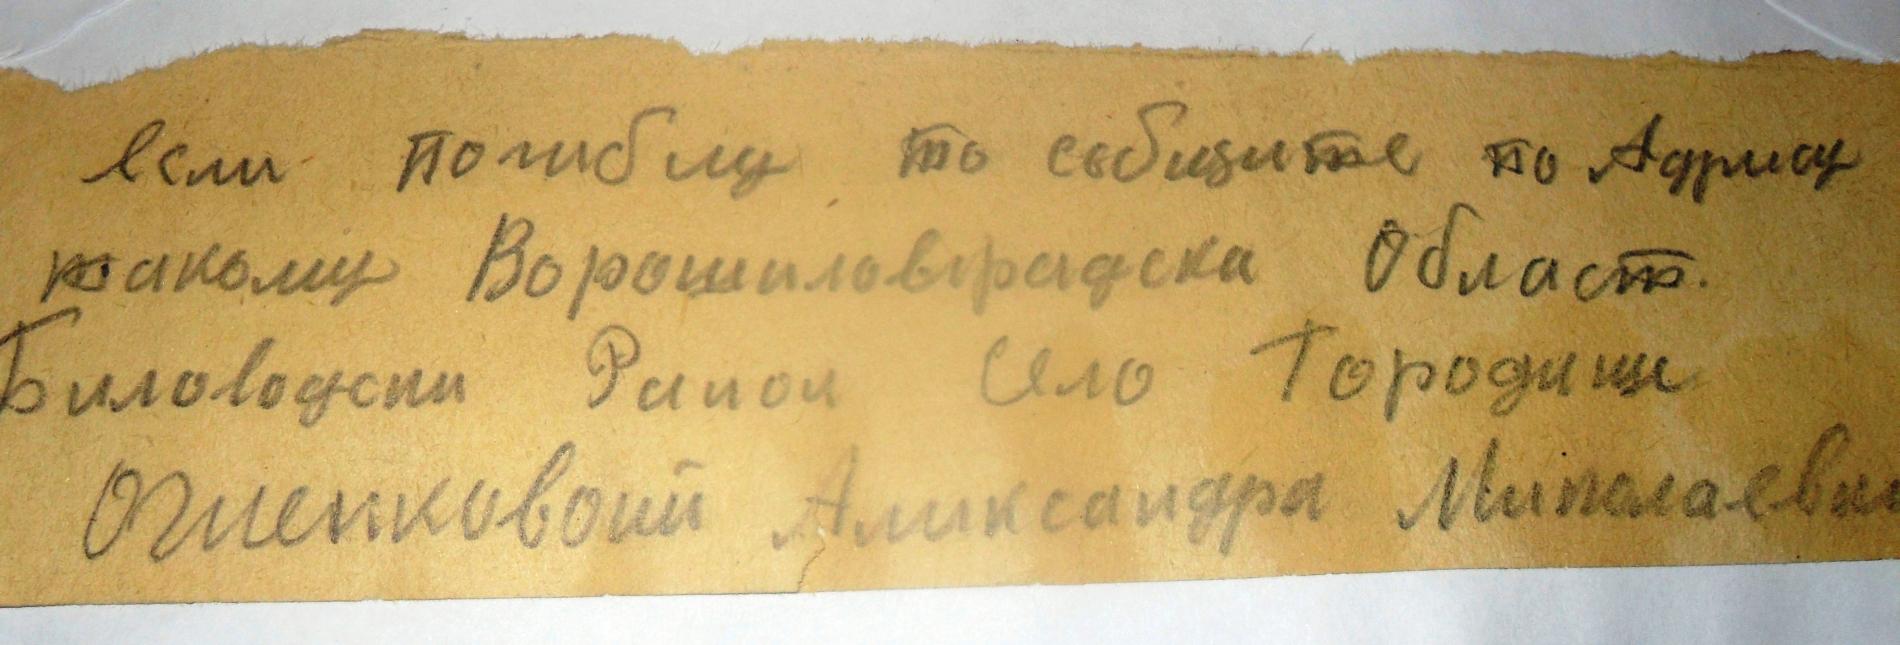 если погиблу то собщите по Адрису
такому Ворошиловградска Област.
Биловодски Раион Село Городищи
Огненковоий Аликсандра Миколаевна